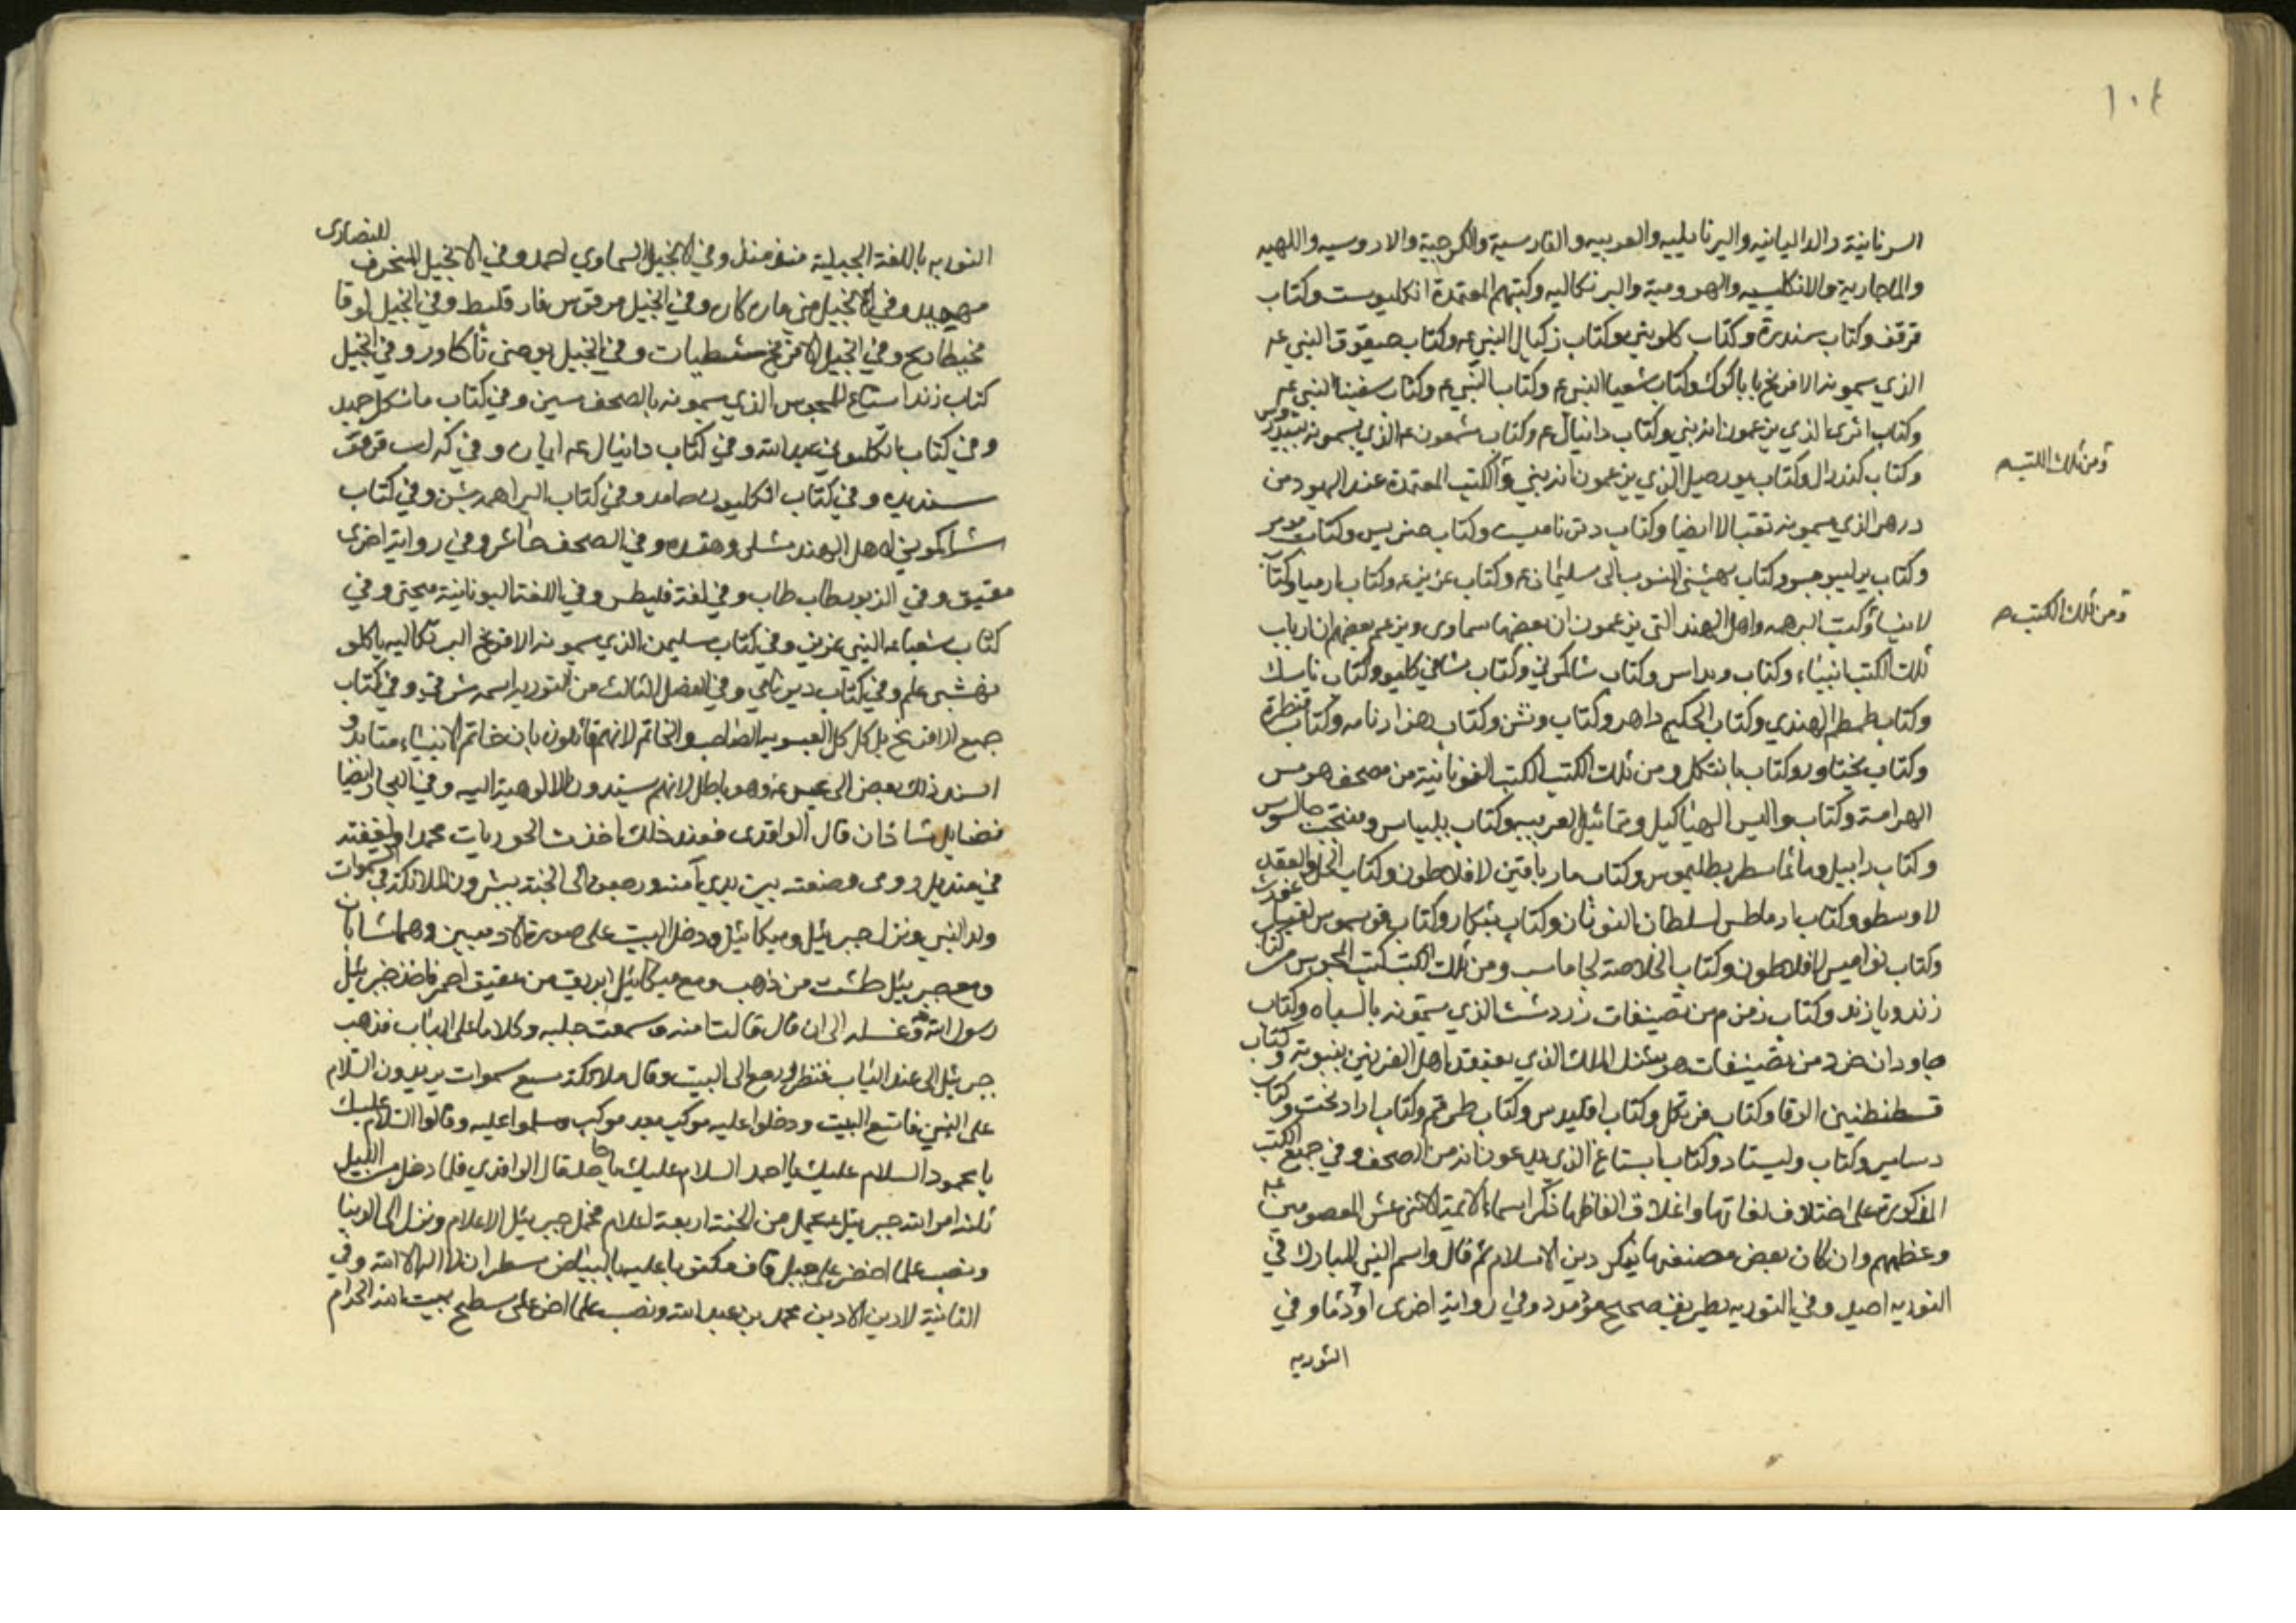 ١٠٤
السريانية والداليانيه والبرنايلييه والعربيه والفارسية والكرجية والاروسيه واللهيه
والماجارية والانكليسيه والهرومية والبرتكاليه وكتبهم المعتمدة انكليوست وكتاب
قرقف وكتاب سندرة وكتاب كلويني وكتاب زكيال النبي عه وكتاب حيقوق النبي عه
الذي سمونه الافرنج باباكوك وكتاب شعيا النبي عه وكتاب النبي عه وكتاب سفينا النبي عه
وكتاب اثرى الذي يزعمون انه نبي وكتاب دانيال عه وكتاب شمعون عه الذي يسمونه
وكتاب كندرال وكتاب يورصيل الذي يزعمون انه نبي والكتب المعتمدة عند اليهود من
ومن تلك الكتب
درهر الذي يسمونه تقبالا ايضا وكتاب دتن ناميت وكتاب حنريس وكتاب
وكتاب يرليبو جبور وكتاب بهشتى المنسوب الى سليمان عه وكتاب عزيز عه وكتاب ارميا وكتاب
لانبيا وكتب البرهمه واهل الهند التي يزعمون ان بعضها سماوى ويزعم بعضهم ان ارباب
ومن تلك الكتب
تلك الكتب انبياء وكتاب ويداس وكتاب شاكموني وكتاب شافي كليو وكتاب ناسك
وكتاب طمطم الهندي وكتاب الحكيم داهر وكتاب وتشن وكتاب هزارنامه وكتاب قنطرة
وكتاب بختاور وكتاب باتنكل ومن تلك الكتب الكتب اليونانية من مصحف هرمس
الهرامسة وكتاب واليس الهياكيل وتماثيل العريبيه وكتاب بليياس ومفتحت جالنوس
وكتاب دابيل وماثما سطر بطليموس وكتاب ماريافتين لافلاطون وكتاب الحل والعقد
لارسطو وكتاب ارماطس لسلطان اليونان وكتاب بتكار وكتاب قوسموس
وكتاب نواميس لافلاطون وكتاب الخلاصة لجاماسب ومن تلك الكتب كتب المجوس من كتاب
زند وپازند وكتاب زمزم من تصنيفات زردشت الذي يسمونه بالسياه وكتاب
جاودان خرد من تصنيفات هوشنك الملك الذي يعتقد اهل الفرس بنبوته وكتاب
قسطنطنين الوقا وكتاب فرتكل وكتاب اقليدس وكتاب طرقم وكتاب ارادبخت وكتاب
دساسير وكتاب وليستاد وكتاب ابستاغ الذي يدعون انه من الصحف وفي جميع الكتب
المذكورة على اختلاف لغاتها واغلاق الفاظها ذكر اسماء الائمة الاثني عشر المعصومين عه
وعظمهم وان كان بعض مصنفيها ينكر دين الاسلام ثم قال واسم النبي المبارك في
التورية احيد وفي التورية بطريقة صحيح مؤمرد وفي رواية اخرى اودنا وفي
التورية
التوريه باللغة الجبيلية منفرمنل وفي الانجيل السماوي احمد وفي الانجيل المنحرف للنصارى
مهجيد وفي الانجيل من ماركار وفي انجيل مرقوس فارقليط وفي انجيل لوقا
مخيطايح وفي انجيل الافرنج ستطيات وفي انجيل يوحنى ثاكاور وفي انجيل
كتاب زند استاع للمجوس الذي يسمونه بالصحف سين وفي كتاب ماشكل حميد
وفي كتاب باتكلوي عبد الله وفي كتاب دانيال عه ايمان وفي كتاب قرقف
سنديده وفي كتاب انكليون حامد وفي كتاب البراهمه بشن وفي كتاب
شاكموني لاهل الهند مشلى وهقده وفي الصحف حاشر وفي رواية اخرى
مقيق وفي الزبور طاب طاب وفي لغة فليطس وفي اللغة اليونانية ميحتى وفي
كتاب شعيا عه النبي عزيز وفي كتاب سليمن الذي يسمونه الافرنج البرتكاليه باكلو
نفشى علم وفي كتاب دين نامي وفي الفصل الثالث من التوريه اسمه شرقي وفي كتاب
جميع الافرنج بل كل كل العيسويه الصاحب والخاتم لانهم قائلون بان خاتم الانبياء متابد و
اسند ذلك بعض الى عيسى عه وهو باطل لانهم يسندون الالوهية اليه وفي البحار ايضا
فضايل شاذان قال الواقدى فعند ذلك اخذت الحوريات محمدا ولففته
في منديل رومى وضعنه بين يدي آمنه ورجعن الى الجنة يبشرون الملائكة في السموات
ولد النبي ونزل جبرئيل وميكائيل ودخل البيت على صورة الادميين وهما شابان
ومع جبرئيل طشت من ذهب ومع ميكائيل ابريق من عقيق احمر فاخذ جبرئيل
رسول الله ص وغسله الى ان قال قالت امنه وسمعت جلبه وكلاما على الباب فذهب
جبرئيل الى عند الباب فنظر ورجع الى البيت وقال ملائكة سبع سموات يريدون السلام
على النبي فاتسع البيت ودخلوا عليه موكب بعد موكب وسلموا عليه وقالوا السلام عليك
يا محمود السلام عليك يا احمد السلام عليك يا حامد قال الواقدي فلما دخل من الليل
ثلثه امر الله جبرئيل عه يحمل من الجنة اربعة اعلام فحمل جبرئيل الاعلام ونزل الى الدنيا
ونصب علما اخضر على جبل قاف مكتوبا عليه بالبياض سطران لا اله الا الله وفي
الثانية لا دين الا دين محمد بن عبد الله ونصب علما اخر على سطح بيت الله الحرام